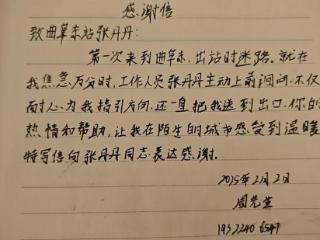 感谢信
致曲阜东站张丹丹:
第一次来到曲阜东,出站时迷路。就在
我焦急万分时,工作人员张丹丹主动上前询问,不仅
耐心为我指引方向,还一直把我送到出口,你的
热情和帮助,让我在陌生的城市感受到温暖
特写信向张丹丹同志表达感谢。
2025年2月2日
周先生